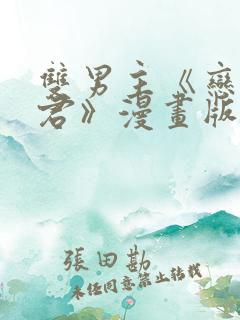 雙男主《戀
君》漫畫版
張田勘
未经同意禁止转载